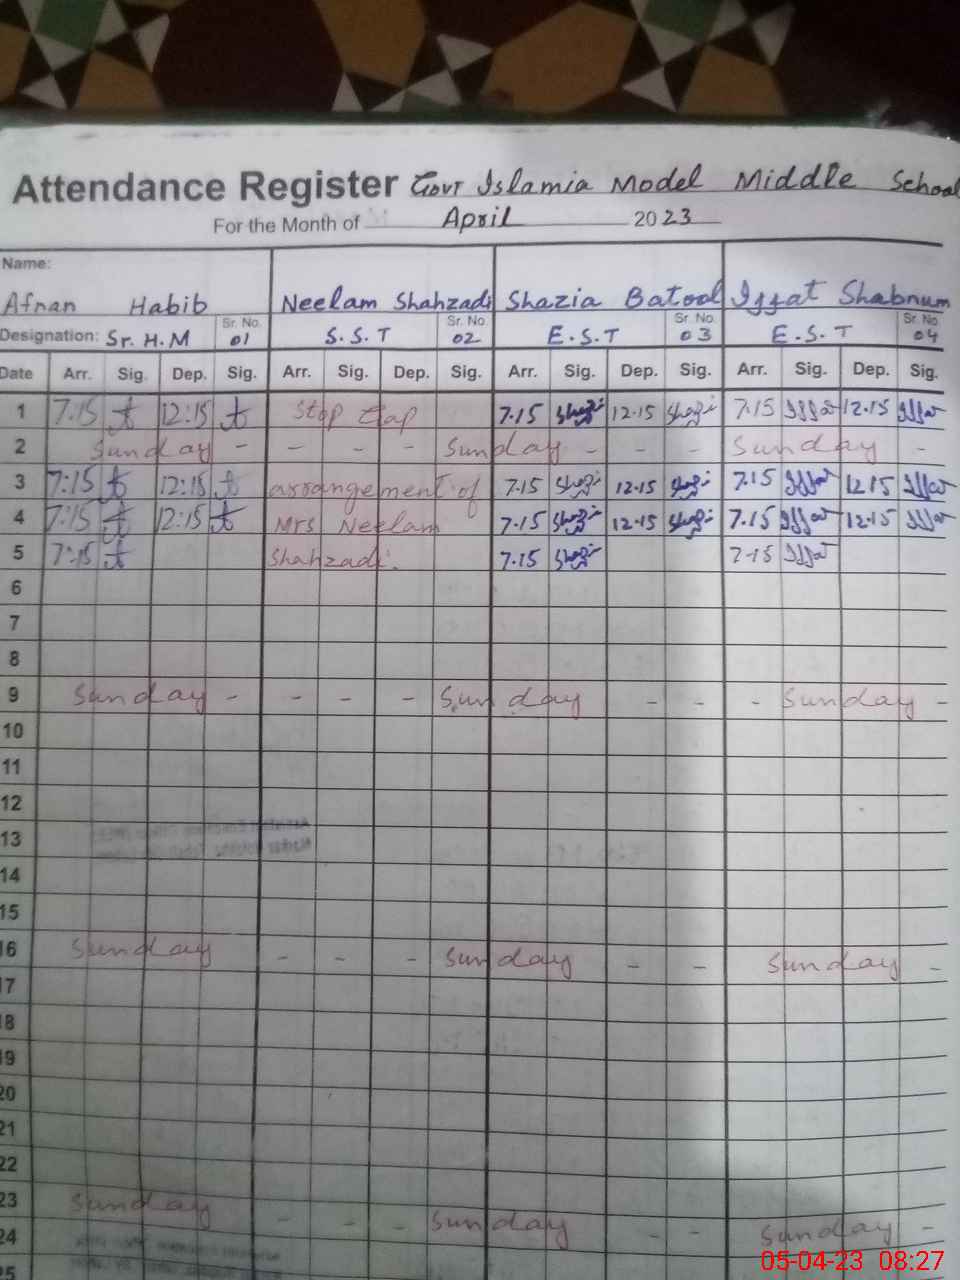 Attendance Register Govt Islamia Model Middle School
For the Month of April 2023
Name:
Afnan Habib Neelam Shahzadi Shazia Batool Izzat Shabnum
Designation: Sr. H.M Sr. No. 01 S.S.T Sr. No. 02 E.S.T Sr. No. 03 E.S.T Sr. No. 04
Date Arr. Sig. Dep. Sig. Arr. Sig. Dep. Sig. Arr. Sig. Dep. Sig. Arr. Sig. Dep. Sig.
1 7:15 12:15 Stop Gap 7.15 12.15 7.15 12.15
2 Sunday - - - - Sunday - - - Sunday -
3 7:15 12:15 arrangement of 7.15 12.15 7.15 12 15
4 7:15 12:15 Mrs Neelam 7.15 12.15 7.15 12.15
5 7:15 Shahzadi. 7.15 7.15
6
7
8
9 Sunday - - - - Sunday - - - Sunday -
10
11
12
13
14
15
16 Sunday - - - Sunday - - Sunday -
17
18
19
20
21
22
23 Sunday - - - Sunday - - Sunday -
24
25
05-04-23 08:27